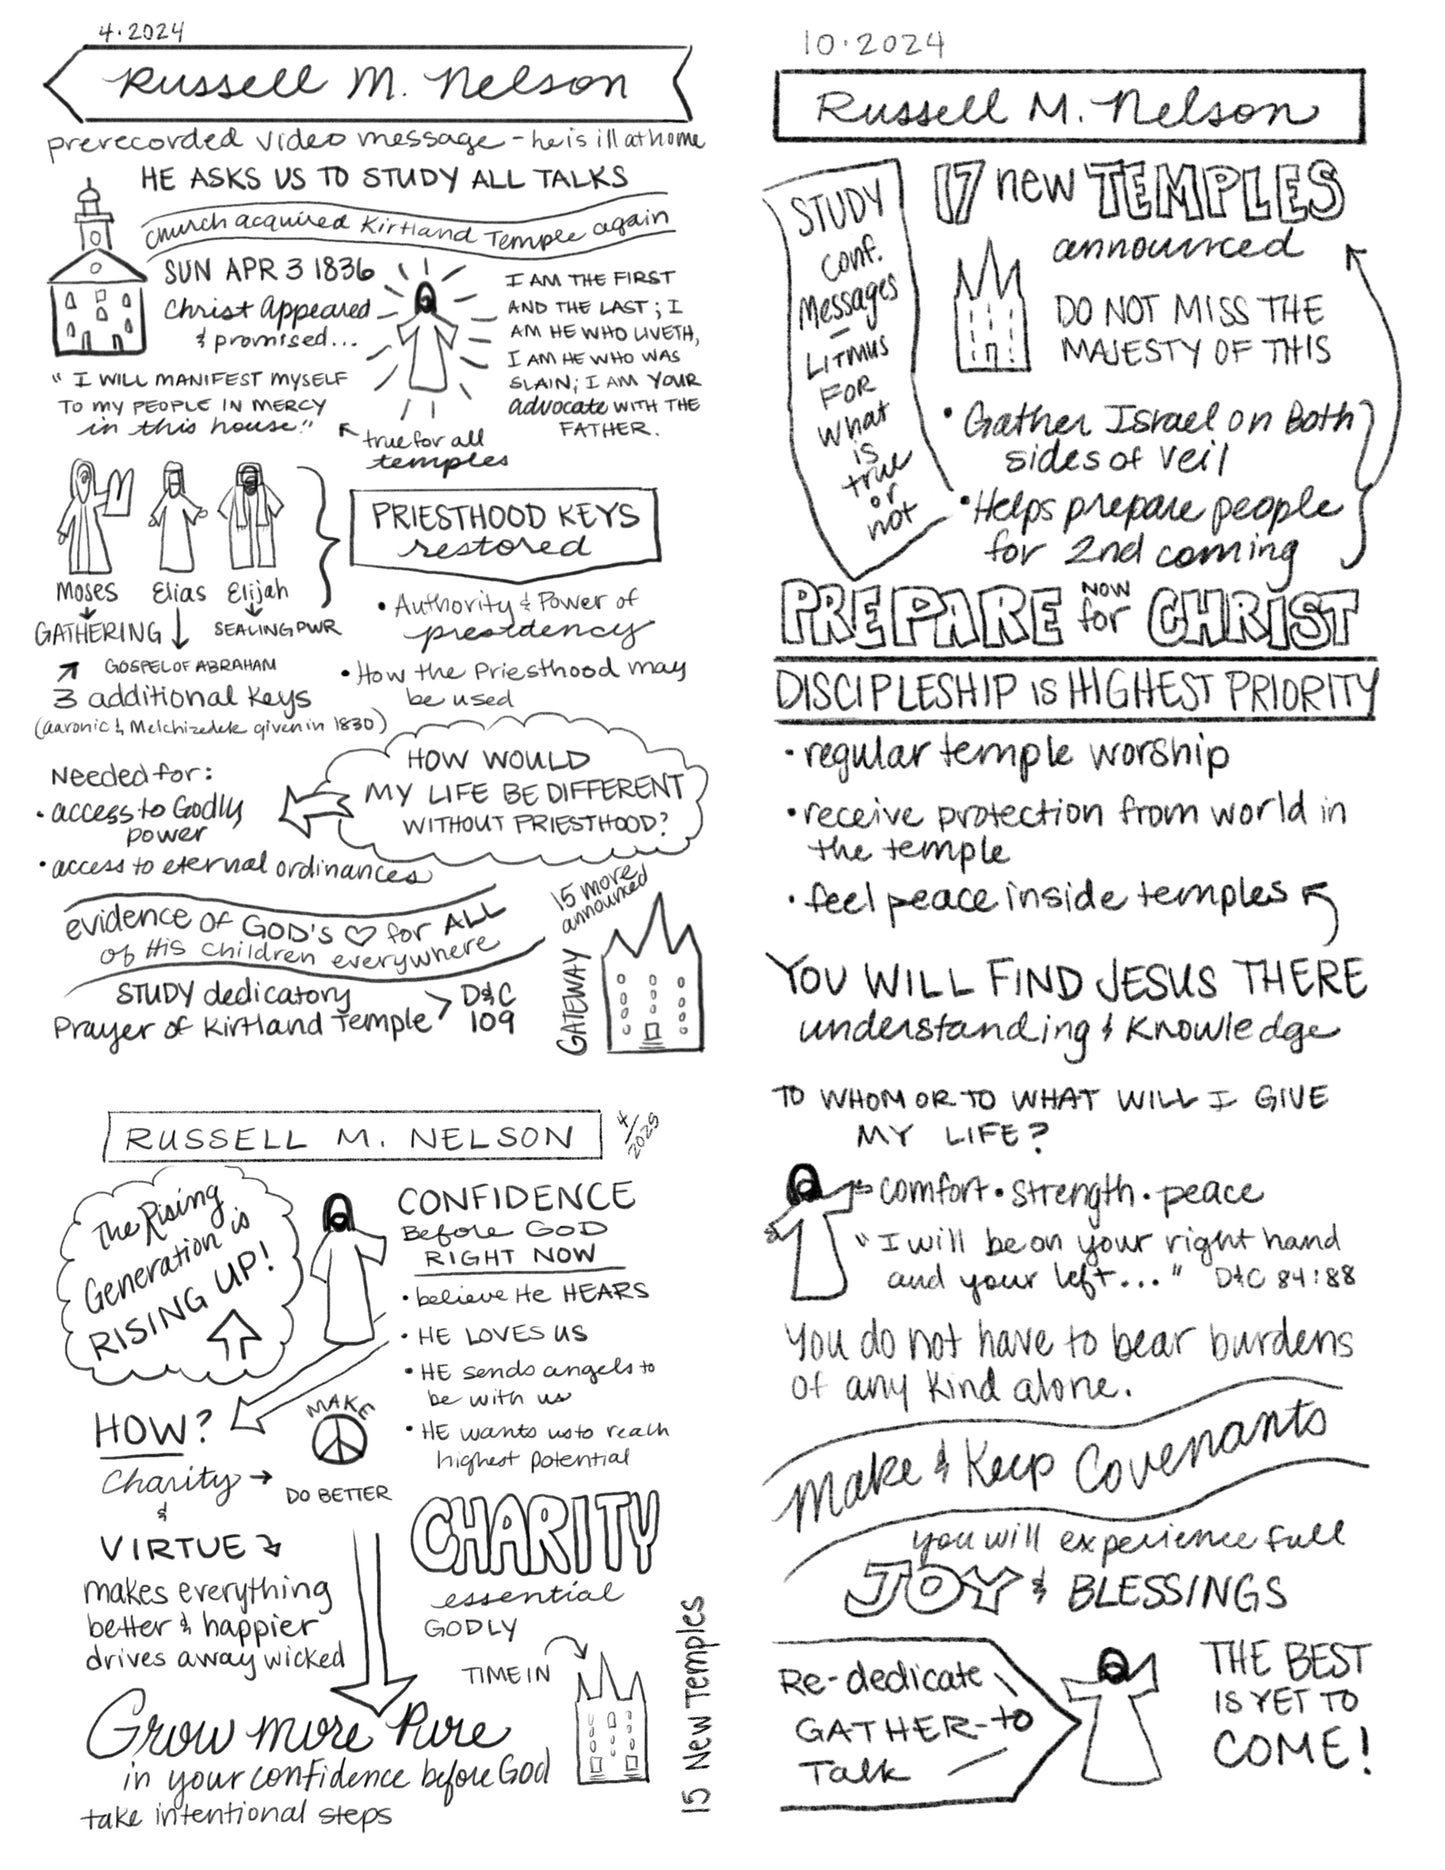 4.2024
Russell M. Nelson
prerecorded video message - he is ill at home
HE ASKS US TO STUDY ALL TALKS
Church acquired Kirtland Temple again
SUN APR 3 1836
Christ Appeared
& promised...
"I WILL MANIFEST MYSELF
TO MY PEOPLE IN MERCY
in this house."
true for all
temples
I AM THE FIRST
AND THE LAST; I
AM HE WHO LIVETH,
I AM HE WHO WAS
SLAIN; I AM YOUR
advocate WITH THE
FATHER.
Moses Elias Elijah
GATHERING SEALING PWR
GOSPEL OF ABRAHAM
3 additional Keys
(aaronic & Melchizedek given in 1830)
PRIESTHOOD KEYS
restored
• Authority & Power of
presidency
• How the Priesthood may
be used
HOW WOULD
MY LIFE BE DIFFERENT
WITHOUT PRIESTHOOD?
Needed for:
• access to Godly
power
• access to eternal ordinances
evidence of GOD'S ♡ for ALL
of His children everywhere
STUDY dedicatory
Prayer of Kirtland Temple > D&C
109
15 more
announced
GATEWAY
RUSSELL M. NELSON
4/2025
The Rising
Generation is
RISING UP!
CONFIDENCE
Before GOD
RIGHT NOW
• believe He HEARS
• HE LOVES US
• HE sends angels to
be with us
• HE wants us to reach
highest potential
HOW?
Charity →
&
VIRTUE
makes everything
better & happier
drives away wicked
MAKE
DO BETTER
CHARITY
essential
GODLY
TIME IN
15 New Temples
Grow more Pure
in your confidence before God
take intentional steps
10.2024
Russell M. Nelson
STUDY
conf.
Messages
—
LITMUS
FOR
what
is
true
or
not
17 new TEMPLES
announced
DO NOT MISS THE
MAJESTY OF THIS
• Gather Israel on Both
sides of veil
• Helps prepare people
for 2nd coming
PREPARE NOW for CHRIST
DISCIPLESHIP IS HIGHEST PRIORITY
• regular temple worship
• receive protection from world in
the temple
• feel peace inside temples
YOU WILL FIND JESUS THERE
understanding & Knowledge
TO WHOM OR TO WHAT WILL I GIVE
MY LIFE?
comfort • strength • peace
"I will be on your right hand
and your left..." D&C 84:88
You do not have to bear burdens
of any Kind alone.
Make & Keep Covenants
you will experience full
JOY & BLESSINGS
Re-dedicate
GATHER-to
Talk
THE BEST
IS YET TO
COME!